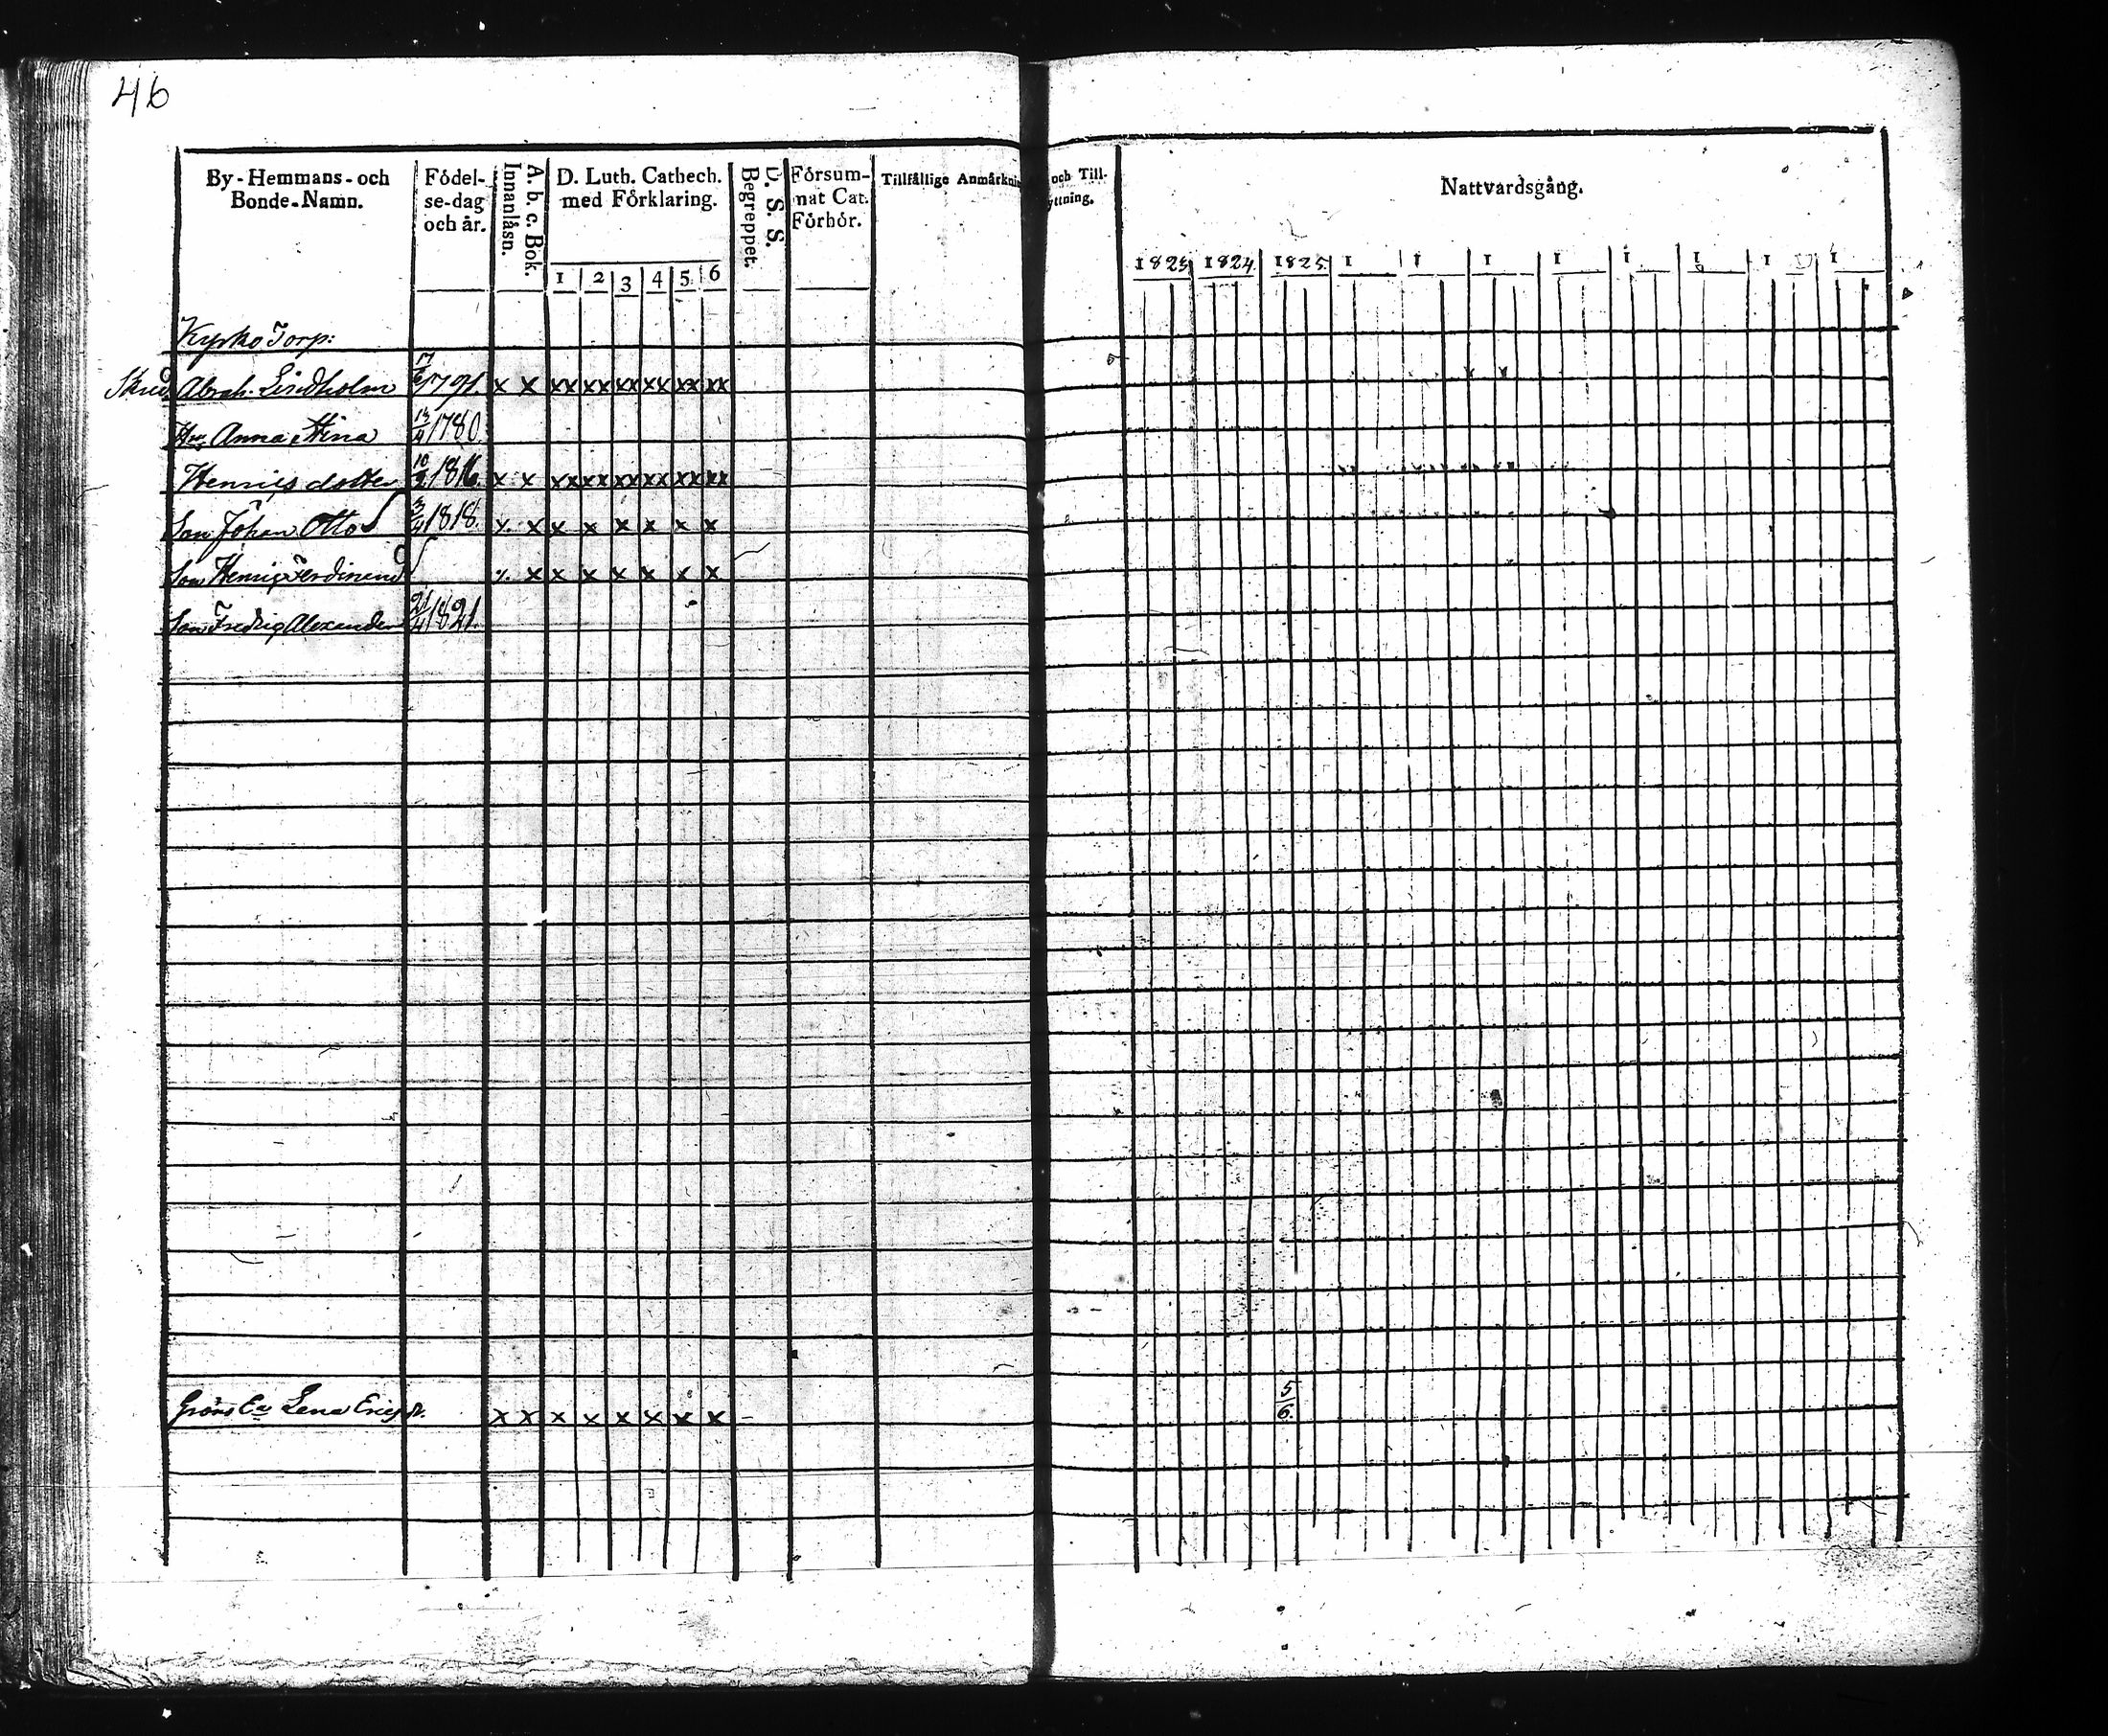 46
By-Hemmans-och Bonde-Namn.
Födel-se-dag och år.
A. b. c. Bok. Innanläsn.
D. Luth. Cathech. med Förklaring.
1 2 3 4 5 6
D. S. S. Begreppet.
Försum-mat Cat. Förhör.
Tillfällige Anmärkni
och Till-
yttning.
Nattvardsgång.
1823 1824. 1825. 1 1 1 1 1 1 1 1
Kyrko Torp:
Abrah. Lindholm 1791. x x xx xx xx xx xx xx
Hu. Anna Stina 1780
Henrics dotter 10 1816. x x xx xx xx xx xx xx
Son Johan Otto 3/4 1818. x x x x x x x
Son Henric Ferdinand x x x x x x x
Son Fredric Alexander 21/4 1821.
Lena Ericsdr. x x x x x x x x – 5/6.